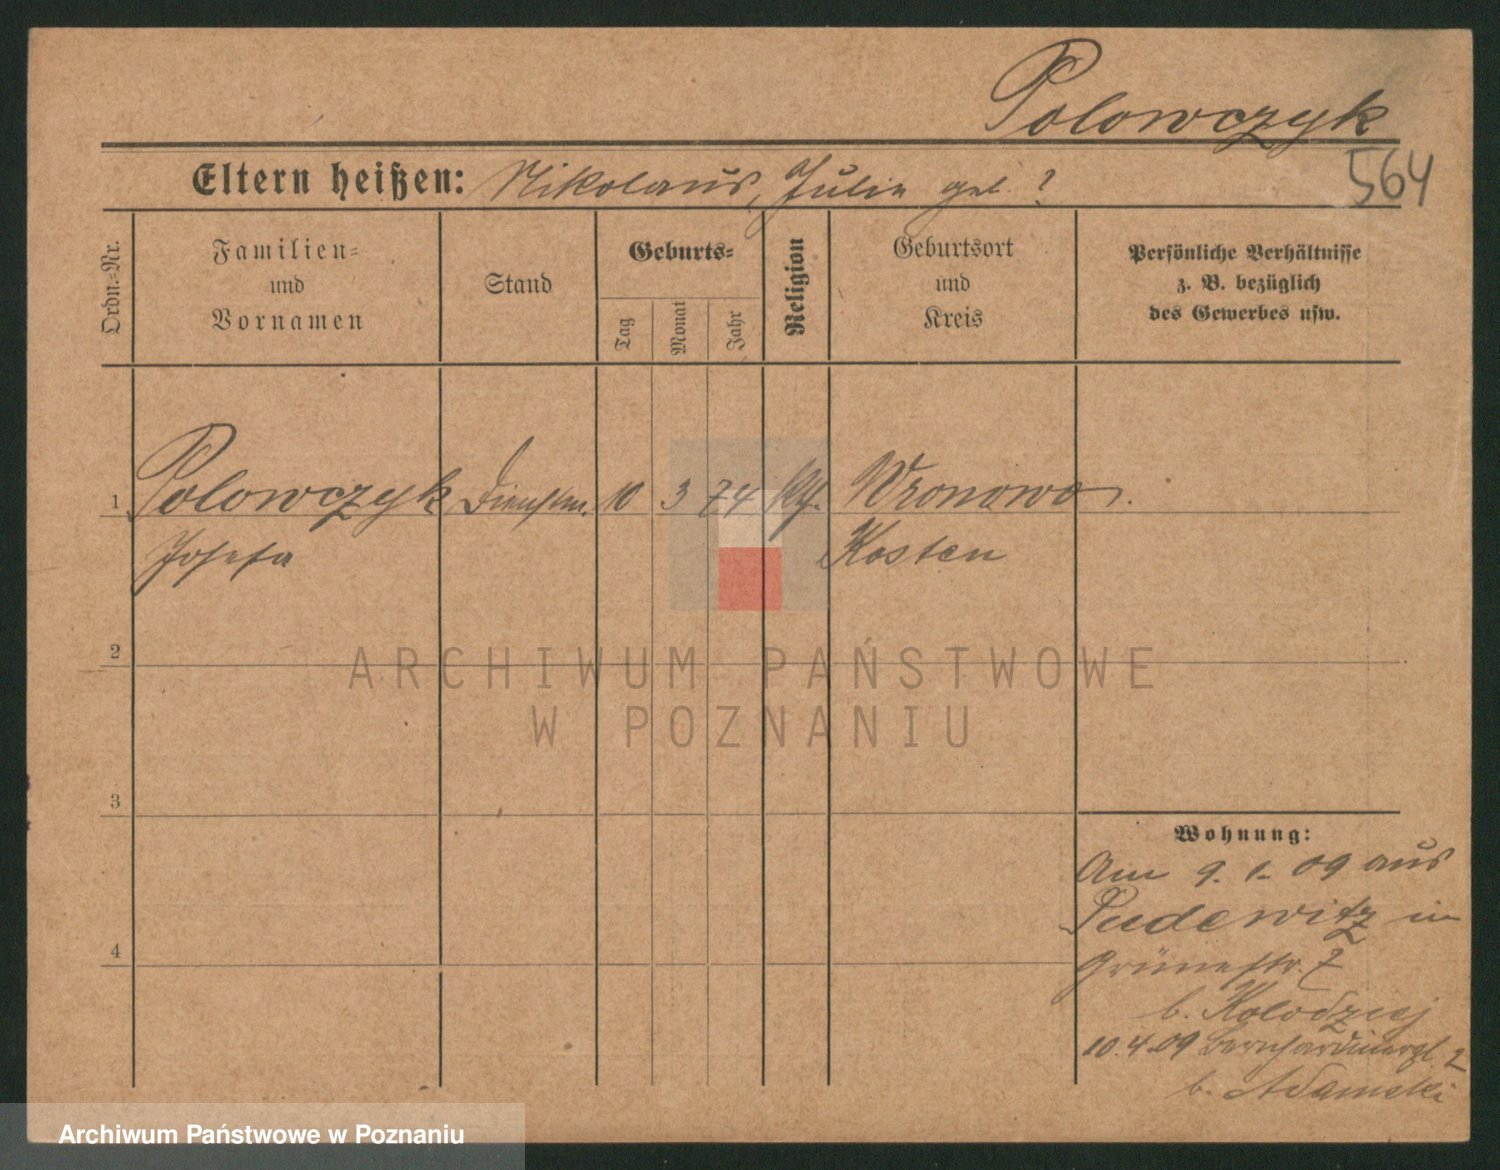 Polowczyk
564
Eltern heißen: Nikolaus, Julie geb. ?
Ordn.=Nr.
Familien=
und
Vornamen
Stand
Geburts=
Tag
Monat
Jahr
Religion
Geburtsort
und
Kreis
Persönliche Verhältnisse
z. B. bezüglich
des Gewerbes usw.
1 Polowczyk Dienstm. 10 3 74 kth. Wronowo
Josefa Kosten
2
3
4
Wohnung:
Am 9. 1. 09 aus
Pudewitz in
Grünestr. 7
b. Kolodziej
10.4.09 Bernhardinerpl. 2
b. Adamski
ARCHIWUM PAŃSTWOWE
W POZNANIU
Archiwum Państwowe w Poznaniu